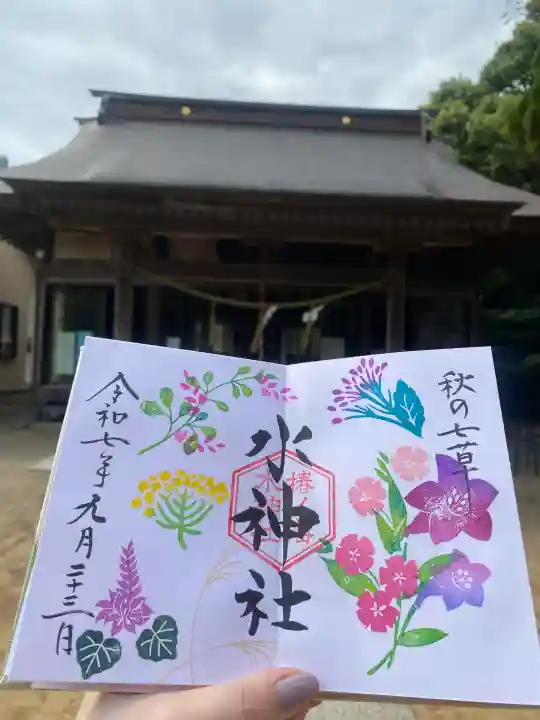 秋の七草
水神社
椿
令和七年九月二十三日